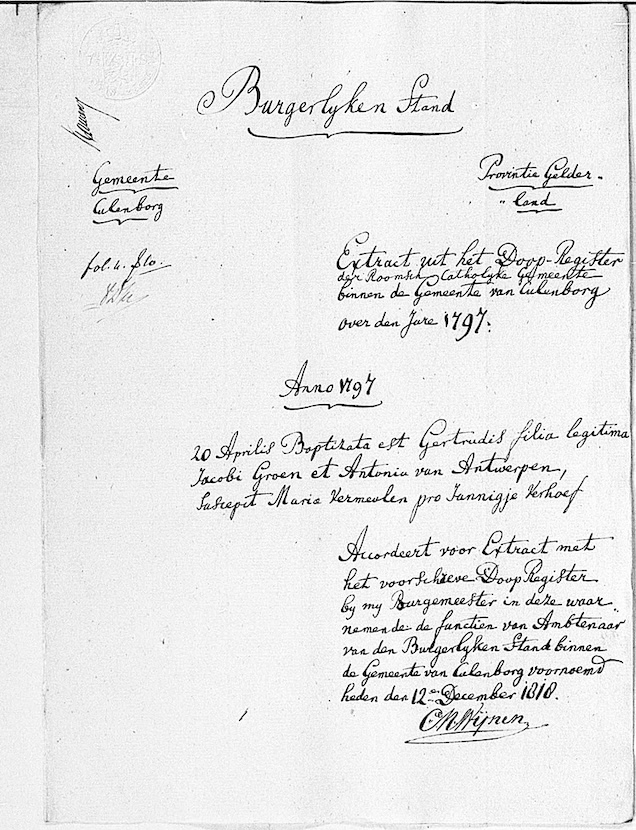 Burgerlyken Stand
Gemeente
Culenborg
Provintie Gelder-
"land
fol. 4. f10.
Extract uit het Doop-Register
der Roomsch Catholyke Gemeente
binnen de Gemeente van Culenborg
over den Jare 1797.
Anno 1797
20 Aprilis Baptizata est Gertrudis filia legitima
Jacobi Groen et Antonia van Antwerpen,
Suscepit Maria Vermeulen pro Jannigje Verhoef
Accordeert voor Extract met
het voorschreve Doop Register
by my Burgemeester in deze waar
nemende de functien van Ambtenaar
van den Burgerlyken Stand binnen
de Gemeente van Culenborg voornoemd
heden den 12en December 1818.
Wijnen